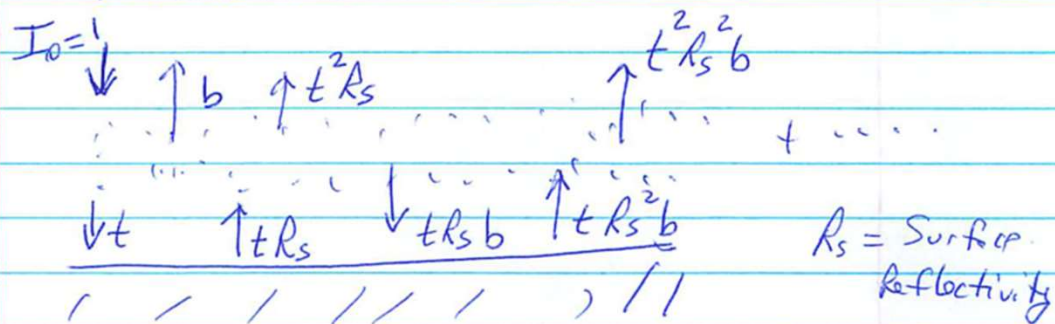 I₀=1
b
t²Rₛ
t²Rₛ²b
+ .....
t
tRₛ
tRₛb
tRₛ²b
Rₛ = Surface
Reflectivity